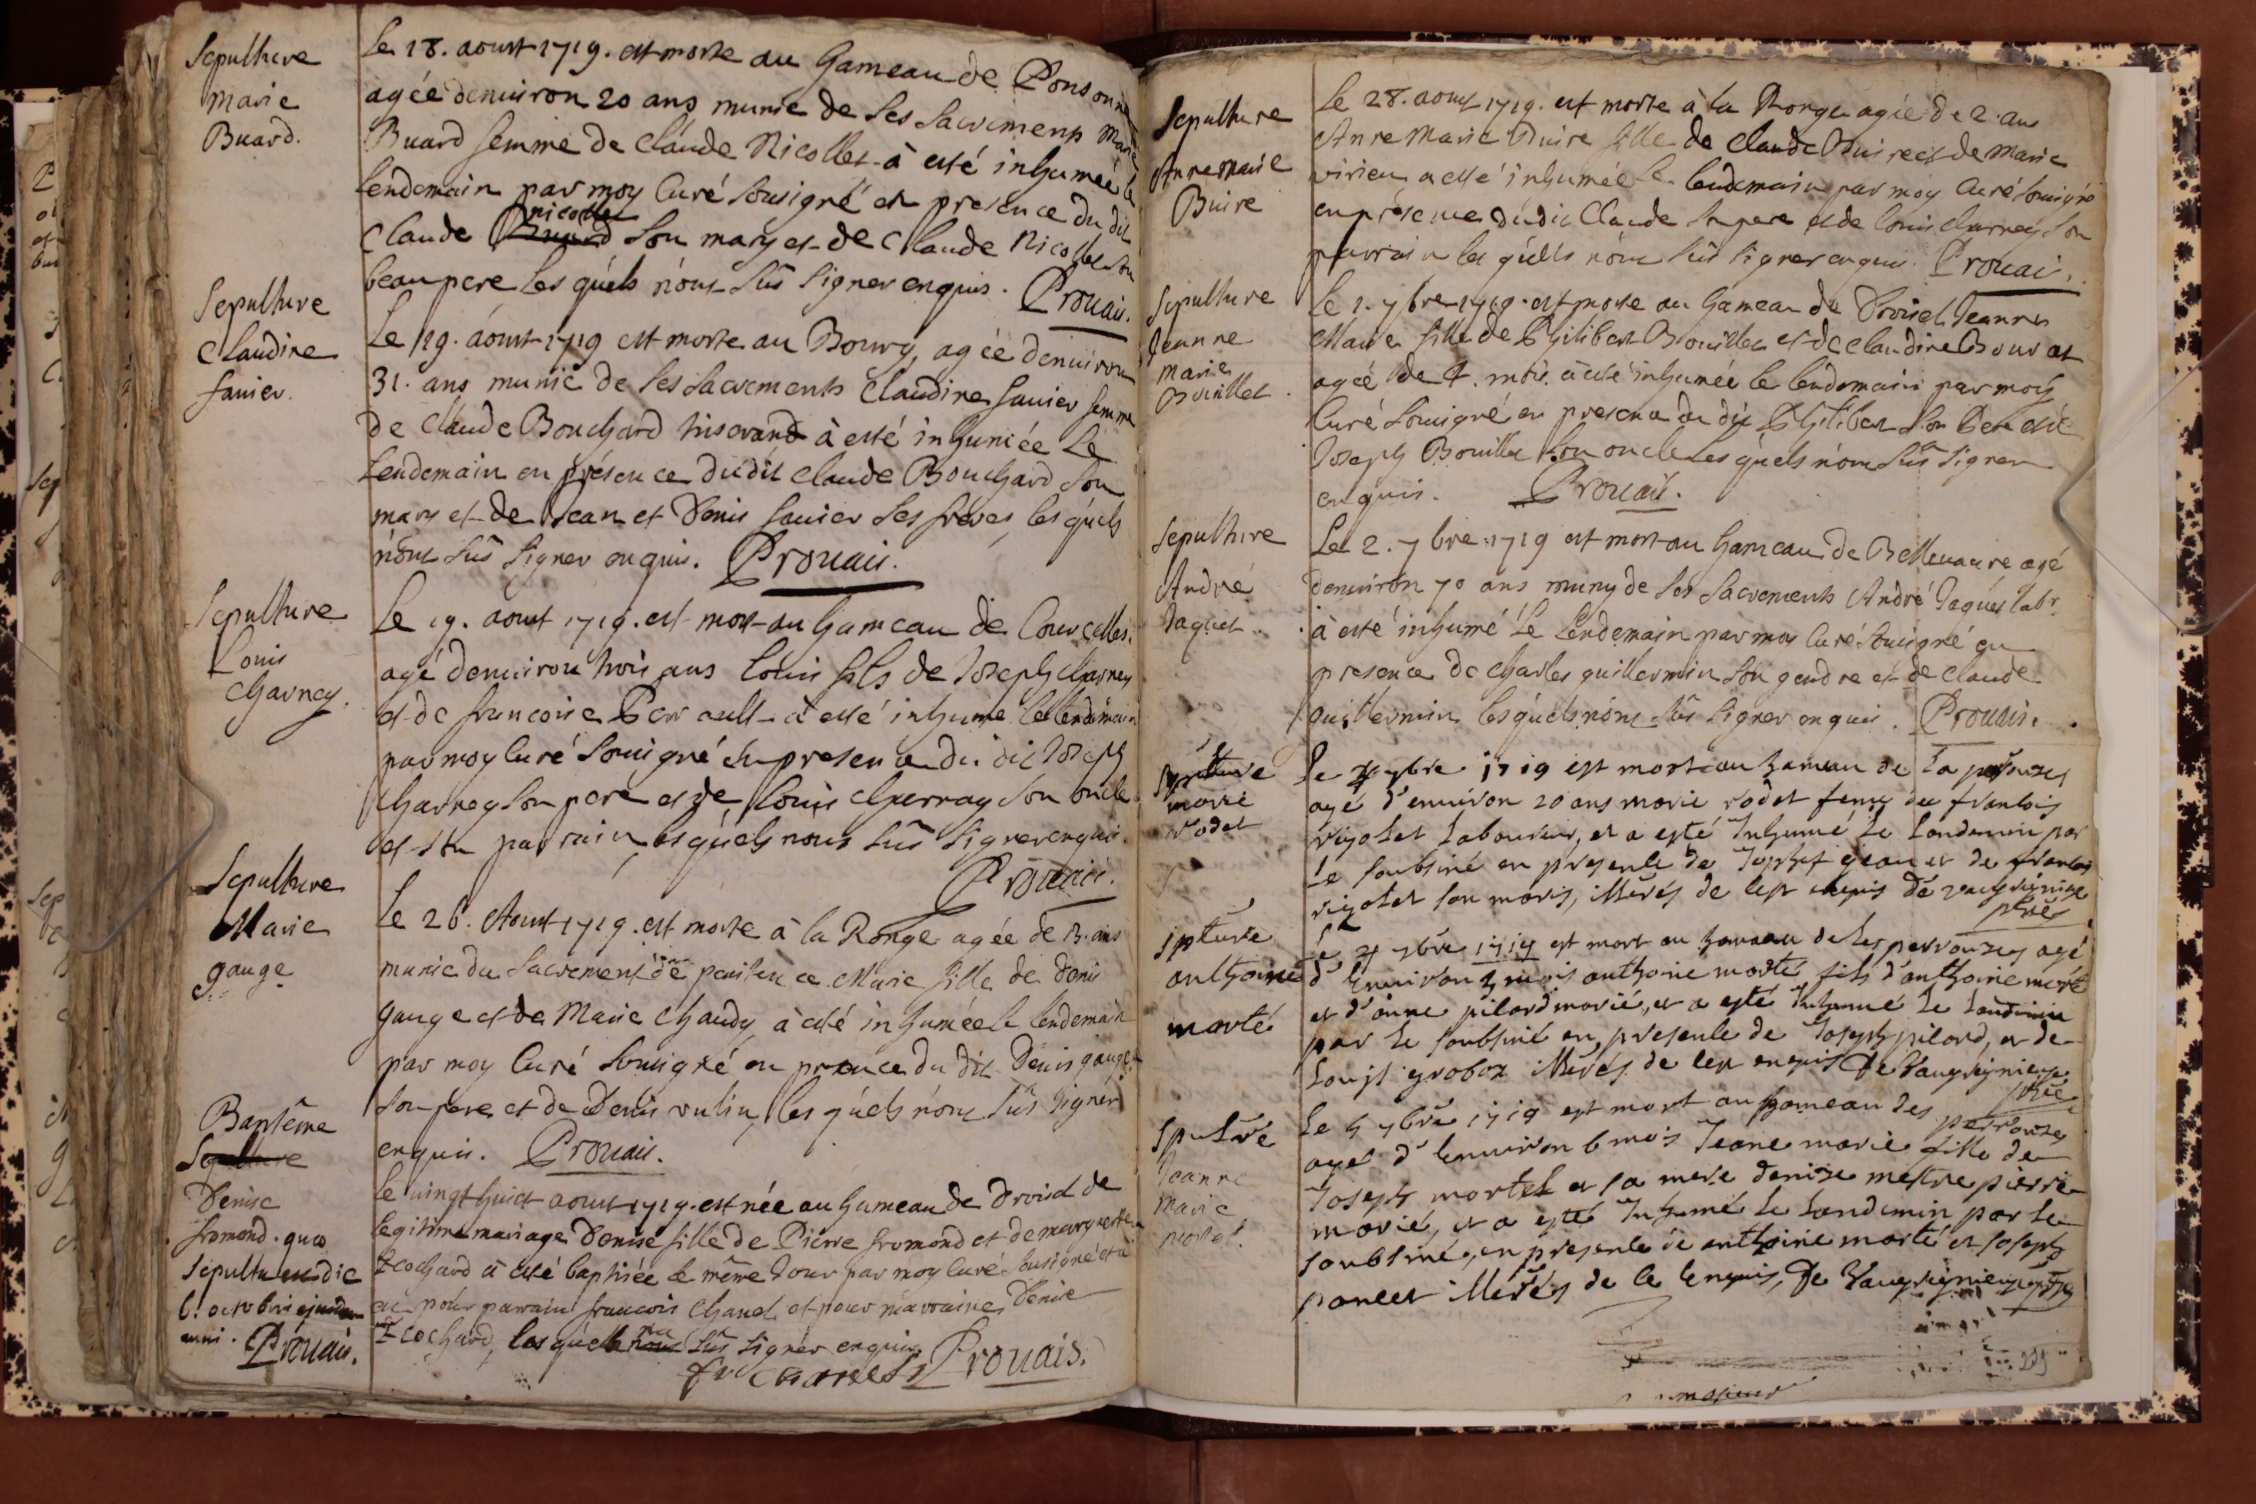 Sepulture
Marie
Buard.
Le 18. aoust 1719. est morte au hameau de Ponsonna
agée denuiron 20 ans munie de ses sacremens Marie
Buard femme de Claude Nicollet à esté inhumée le
lendemain par moy Curé sousigné en presence du dit
nicollet
Claude Buard son mary et de Claude Nicollet son
beau pere les quels n'ont sûs signer enquis. Prouais.
Sepulture
Claudine
fauier.
Le 19. aoust 1719 est morte au Bourg, agée denuiron
31. ans munie de ses sacrements Claudine fauier femme
de Claude Bouchard tiserand à esté inhumée le
Lendemain en présence dudit Claude Bouchard son
mary et de Jean et Denis fauier ses freres, les quels
n'ont sûs signer enquis. Prouais.
Sepulture
Louis
Charney.
Le 19. aoust 1719. est mort au hameau de Courcelles.
agé denuiron trois ans Louis fils de Joseph Charney
et de francoise Perrault à esté inhumé le lendemain
par moy Curé sousigné en presence du dit Joseph
Charney son pere et de Louis Charnay son oncle
et son parrain les quels nont sûs signer enquis.
Prouais.
Sepulture
Marie
gauge
Le 26. Aoust 1719. est morte à la Ronge agée de 13. ans
munie du sacrement de penitence Marie fille de Denis
gauge et de Marie Chaudy à esté inhumée le lendemain
par moy Curé sousigné en presence du dit Denis gauge
son pere et de Denis vulin les quels n'ont sûs signer
enquis. Prouais.
Baptême
Sepulture
Denise
fromond. quæ
sepulta est die
6. octobris ejusdem
anni. Prouais.
Le vingt huict aoust 1719. est née au hameau de Droisel de
legitime mariage Denise fille de Pierre fromond et de marguerite
Ecochard à esté baptisée le même Jour par moy Curé sousigné et a
eu pour parain francois Chanel et pour marraine Denise
Ecochard, les quels nont sûs signer enquis
fr Chanel Prouais.
Sepulture
Anne Marie
Buire
Le 28. aoust 1719. est morte à la Ronge agée de 2. ans
Anne Marie Buire fille de Claude Buire et de Marie
virieu a esté inhumée le lendemain par moy Curé sousigné
en présence dudit Claude son pere et de Louis Charney son
parrain les quels n'ont sûs signer enquis. Prouais.
Sepulture
Jeanne
marie
Bouillet.
Le 1. 7bre 1719. est morte au hameau de Droisel Jeanne
Marie fille de Philibert Bouillet et de Claudine Bourat
ageé de 4. mois à esté inhumée le lendemain par moy
Curé sousigné en presence du dit Philibert son Pere et de
Joseph Bouillet son oncle les quels n'ont sûs signer
enquis. Prouais.
Sepulture
André
Jaquet.
Le 2. 7bre 1719 est mort au hameau de Bellevavre agé
denuiron 70 ans muny de ses sacrements André Jaques labr
à esté inhumé le Lendemain par moy Curé sousigné en
presence de Charles guillermin son gendre et de Claude
guillermin les quels n'ont sûs signer enquis. Prouais.
Spulture
marie
rodet
le 7bre 1719 est mort au hameau de la
agé d'enuiron 20 ans marie rodet feme du franCois
rigolet laboureur, et a esté Inhumé le landemin par
le soubsiné en presente de Joseph gean et de franCois
rigolet son maris, illitérés de lep enquis De vaugrignieuse
ptre
spture
anthoine
morté
le 7bre 1719 est mort au hameau de les perrouzes agé
d'enuiron 3 mois anthoine morté fils d'anthoine morté
et d'anne pilard marié, et a esté Inhumé le landemin
par le soubsiné en presente de Joseph pilard, et de
Louis grobon illitérés de lep enquis De vaugrignieuse
ptre
spulture
Jeanne
Marie
mortel.
le 5 7bre 1719 est mort au hameau des perrouzes
agé d'enuiron 6 mois Jeane marie fille de
Joseph mortel et sa mere denise mestre pierre
marié, et a esté Inhumé le landemin par le
soubsiné, en presente de anthoine morté et Joseph
poncet illitérés de le enquis, De vaugrignieuse ptre